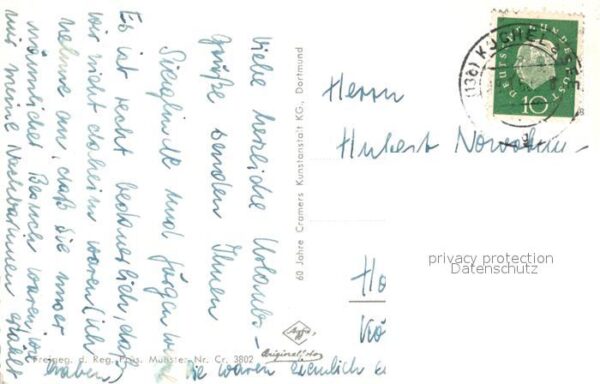 Viele herzliche Urlaubs-
grüße senden Ihnen
Sieglinde und Jürgen
Es ist recht bedauerlich, daß
wir nicht daheim waren (ich
nehme an, daß Sie unser
männlicher Besuch waren, wie
mir meine Nachbarinnen erzählt
haben)
Sie waren ziemlich
60 Jahre Cramers Kunstanstalt KG., Dortmund
Freigeg. d. Reg. Präs. Münster Nr. Cr. 3802
Agfa
Original-foto
(13b) KOCHEL
DEUTSCHE BUNDESPOST
10
Herrn
Hubert
Ho
Kö
privacy protection
Datenschutz